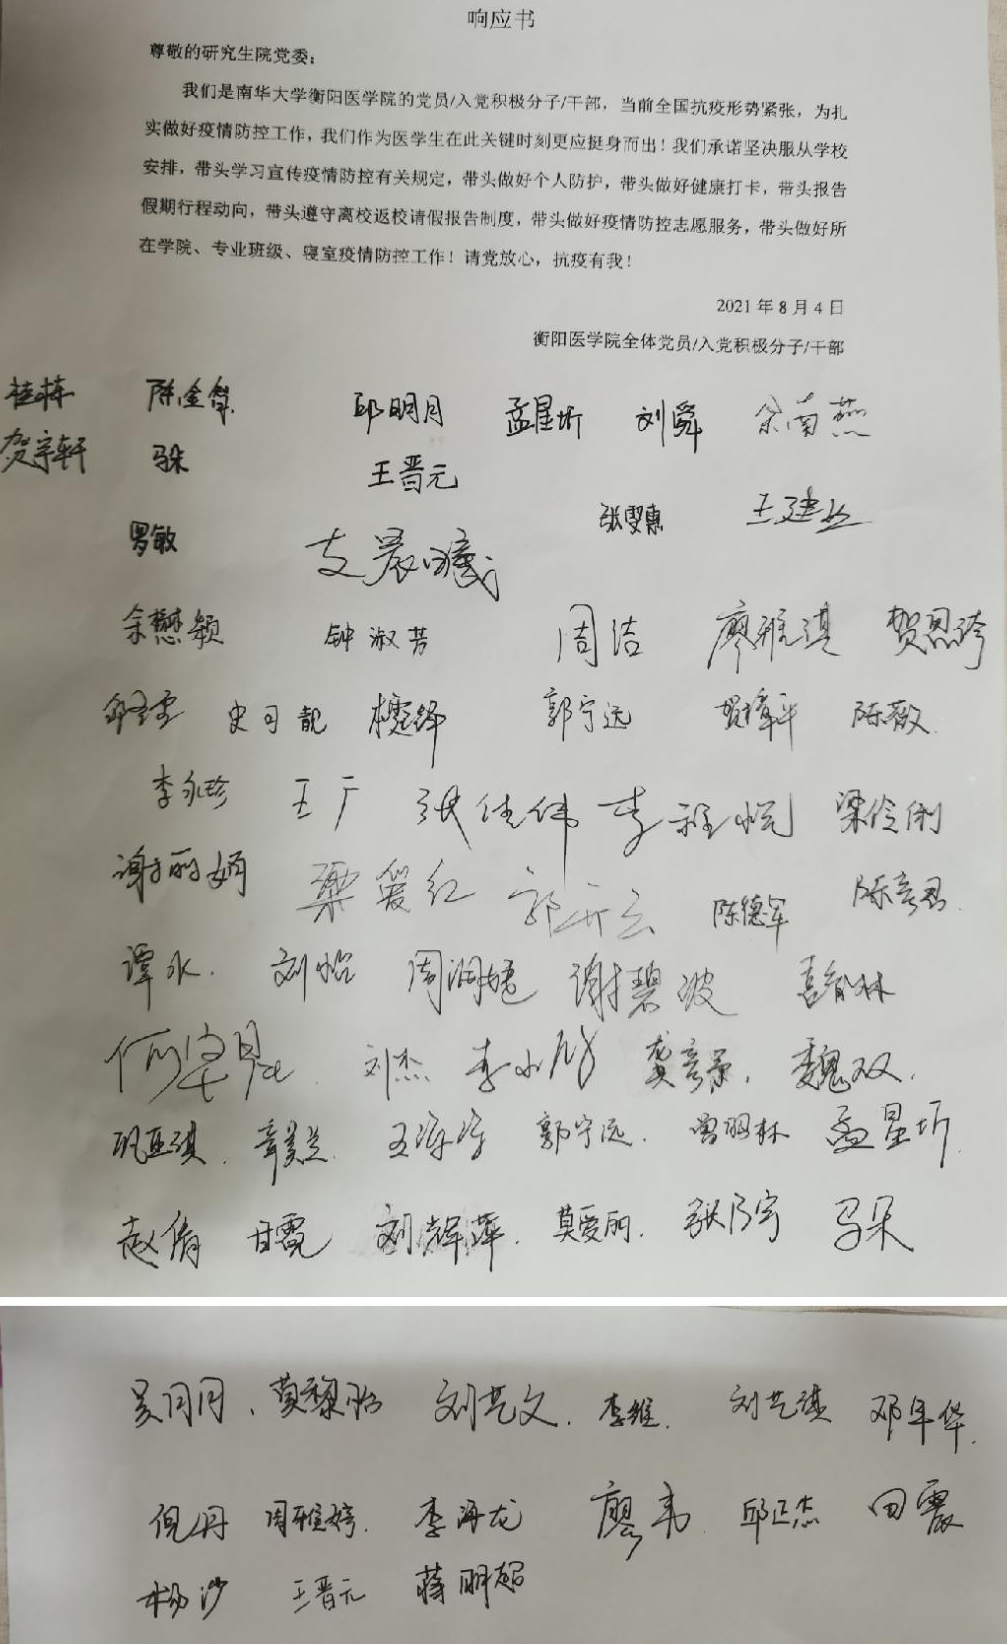 响应书
尊敬的研究生院党委：
我们是南华大学衡阳医学院的党员/入党积极分子/干部，当前全国抗疫形势紧张，为扎
实做好疫情防控工作，我们作为医学生在此关键时刻更应挺身而出！我们承诺坚决服从学校
安排，带头学习宣传疫情防控有关规定，带头做好个人防护，带头做好健康打卡，带头报告
假期行程动向，带头遵守离校返校请假报告制度，带头做好疫情防控志愿服务，带头做好所
在学院、专业班级、寝室疫情防控工作！请党放心，抗疫有我！
2021年8月4日
衡阳医学院全体党员/入党积极分子/干部
桂栋 邱明月 孟星昕 刘舜 余南燕
贺宇轩 马朵 王晋元
罗敏 支晨曦 张雯惠
余懋颖 钟淑芳 周洁 廖雅淇
郭宁远 陈薇
李永珍 王广 张佳伟 梁伶俐
谢丽娟 梁爱红 陈德军
谭永 刘怡 谢碧波
刘杰 魏双
巩亚淇 郭宁远 曾羽林 孟星昕
赵倩 甘霓 刘辉萍 莫爱丽 张乃宇 马朵
吴同同 黄黎明 刘艺文 李维 刘艺淇 邓年华
倪丹 周雅婷 李海龙 廖韦 邱正杰 田震
杨沙 王晋元 蒋明超